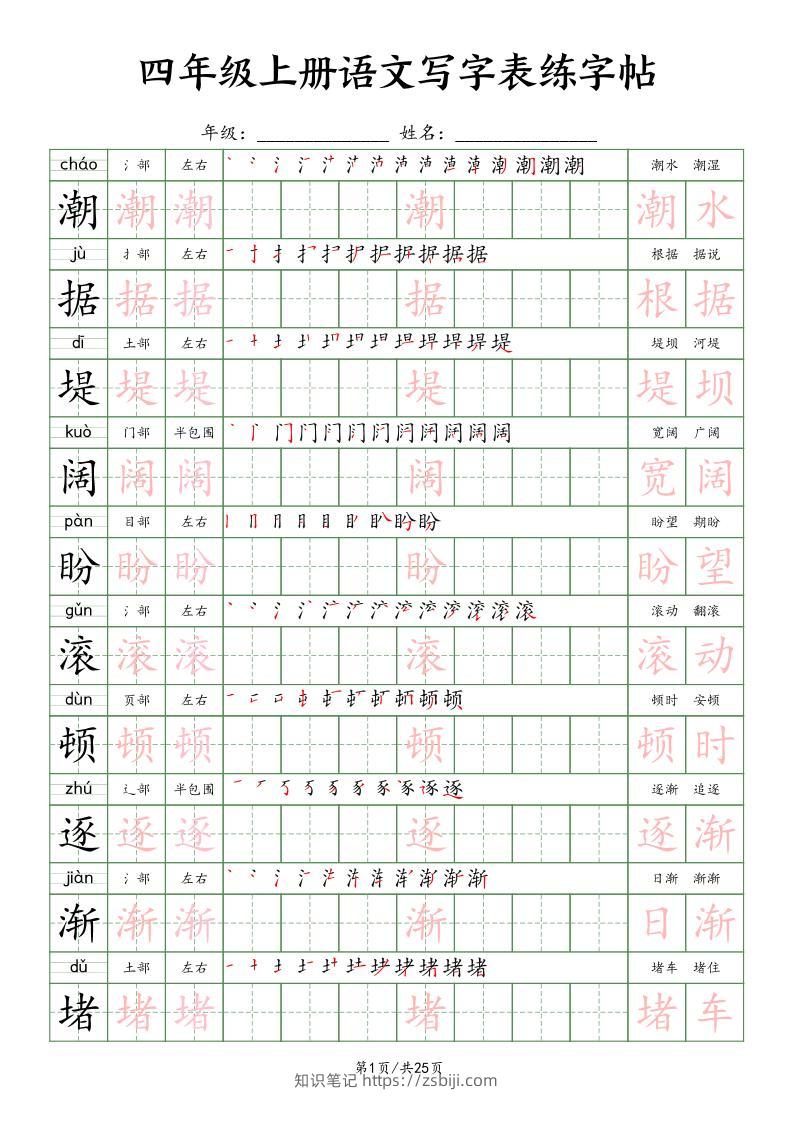 四年级上册语文写字表练字帖
年级：______________ 姓名：_______________
cháo 氵部 左右 潮水 潮湿
潮 潮 潮 潮 潮 水
jù 扌部 左右 根据 据说
据 据 据 据 根 据
dī 土部 左右 堤坝 河堤
堤 堤 堤 堤 堤 坝
kuò 门部 半包围 宽阔 广阔
阔 阔 阔 阔 宽 阔
pàn 目部 左右 盼望 期盼
盼 盼 盼 盼 盼 望
gǔn 氵部 左右 滚动 翻滚
滚 滚 滚 滚 滚 动
dùn 页部 左右 顿时 安顿
顿 顿 顿 顿 顿 时
zhú 辶部 半包围 逐渐 追逐
逐 逐 逐 逐 逐 渐
jiàn 氵部 左右 日渐 渐渐
渐 渐 渐 渐 日 渐
dǔ 土部 左右 堵车 堵住
堵 堵 堵 堵 堵 车
第1页/共25页
知识笔记 https://zsbiji.com